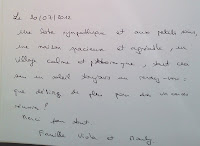 Le 20/07/2012
Une hôte sympathique et aux petits soins,
une maison spacieuse et agréable, un
village calme et pittoresque, tout cela
sous un soleil toujours au rendez-vous :
que désirer de plus pour des vacances
réussies !
Merci pour tout
Famille Viola et